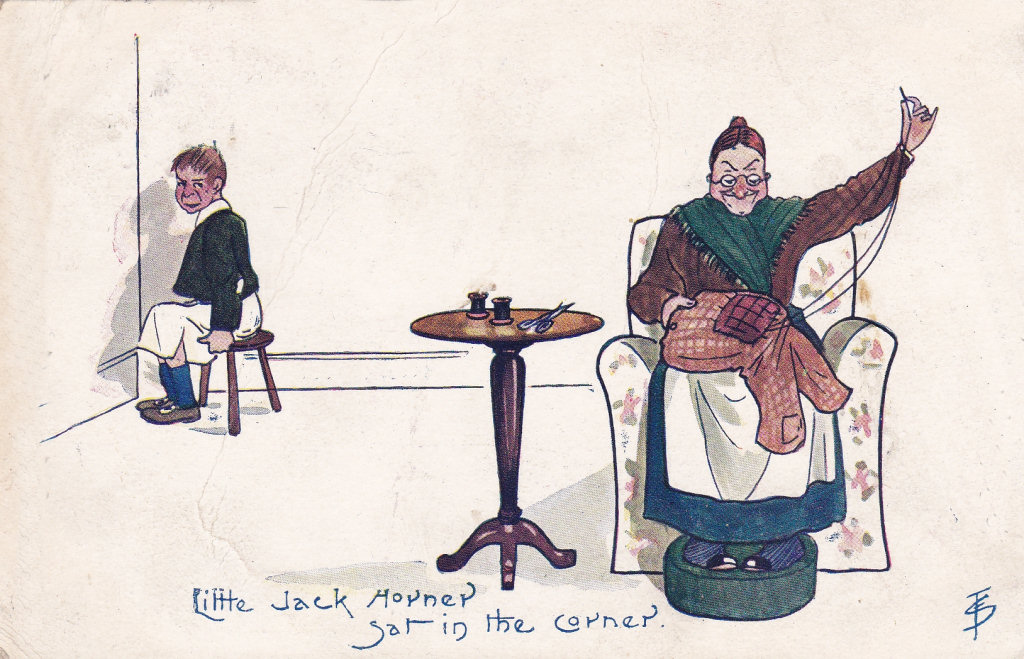 Little Jack Horner
sat in the corner.